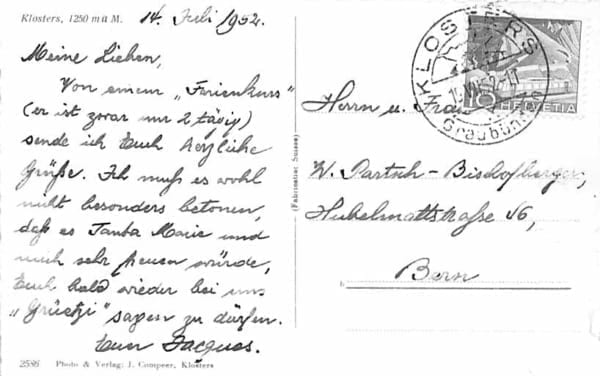 Klosters, 1250 m ü M.
14. Juli 1952.
Meine Lieben,
Von einem „Ferienkurs"
(er ist zwar nur 2 tägig)
sende ich Euch herzliche
Grüße. Ich muß es wohl
nicht besonders betonen,
daß es Tante Marie und
mich sehr freuen würde,
Euch bald wieder bei uns
„Grüetzi" sagen zu dürfen.
Euer Jacques.
2586 Photo & Verlag: J. Compeer, Klosters
(Fabrication Suisse)
KLOSTERS
(Graubünden)
10 HELVETIA
Herrn u. Frau
W. Partsch-Bischofberger,
Hubelmattstraße 46,
Bern